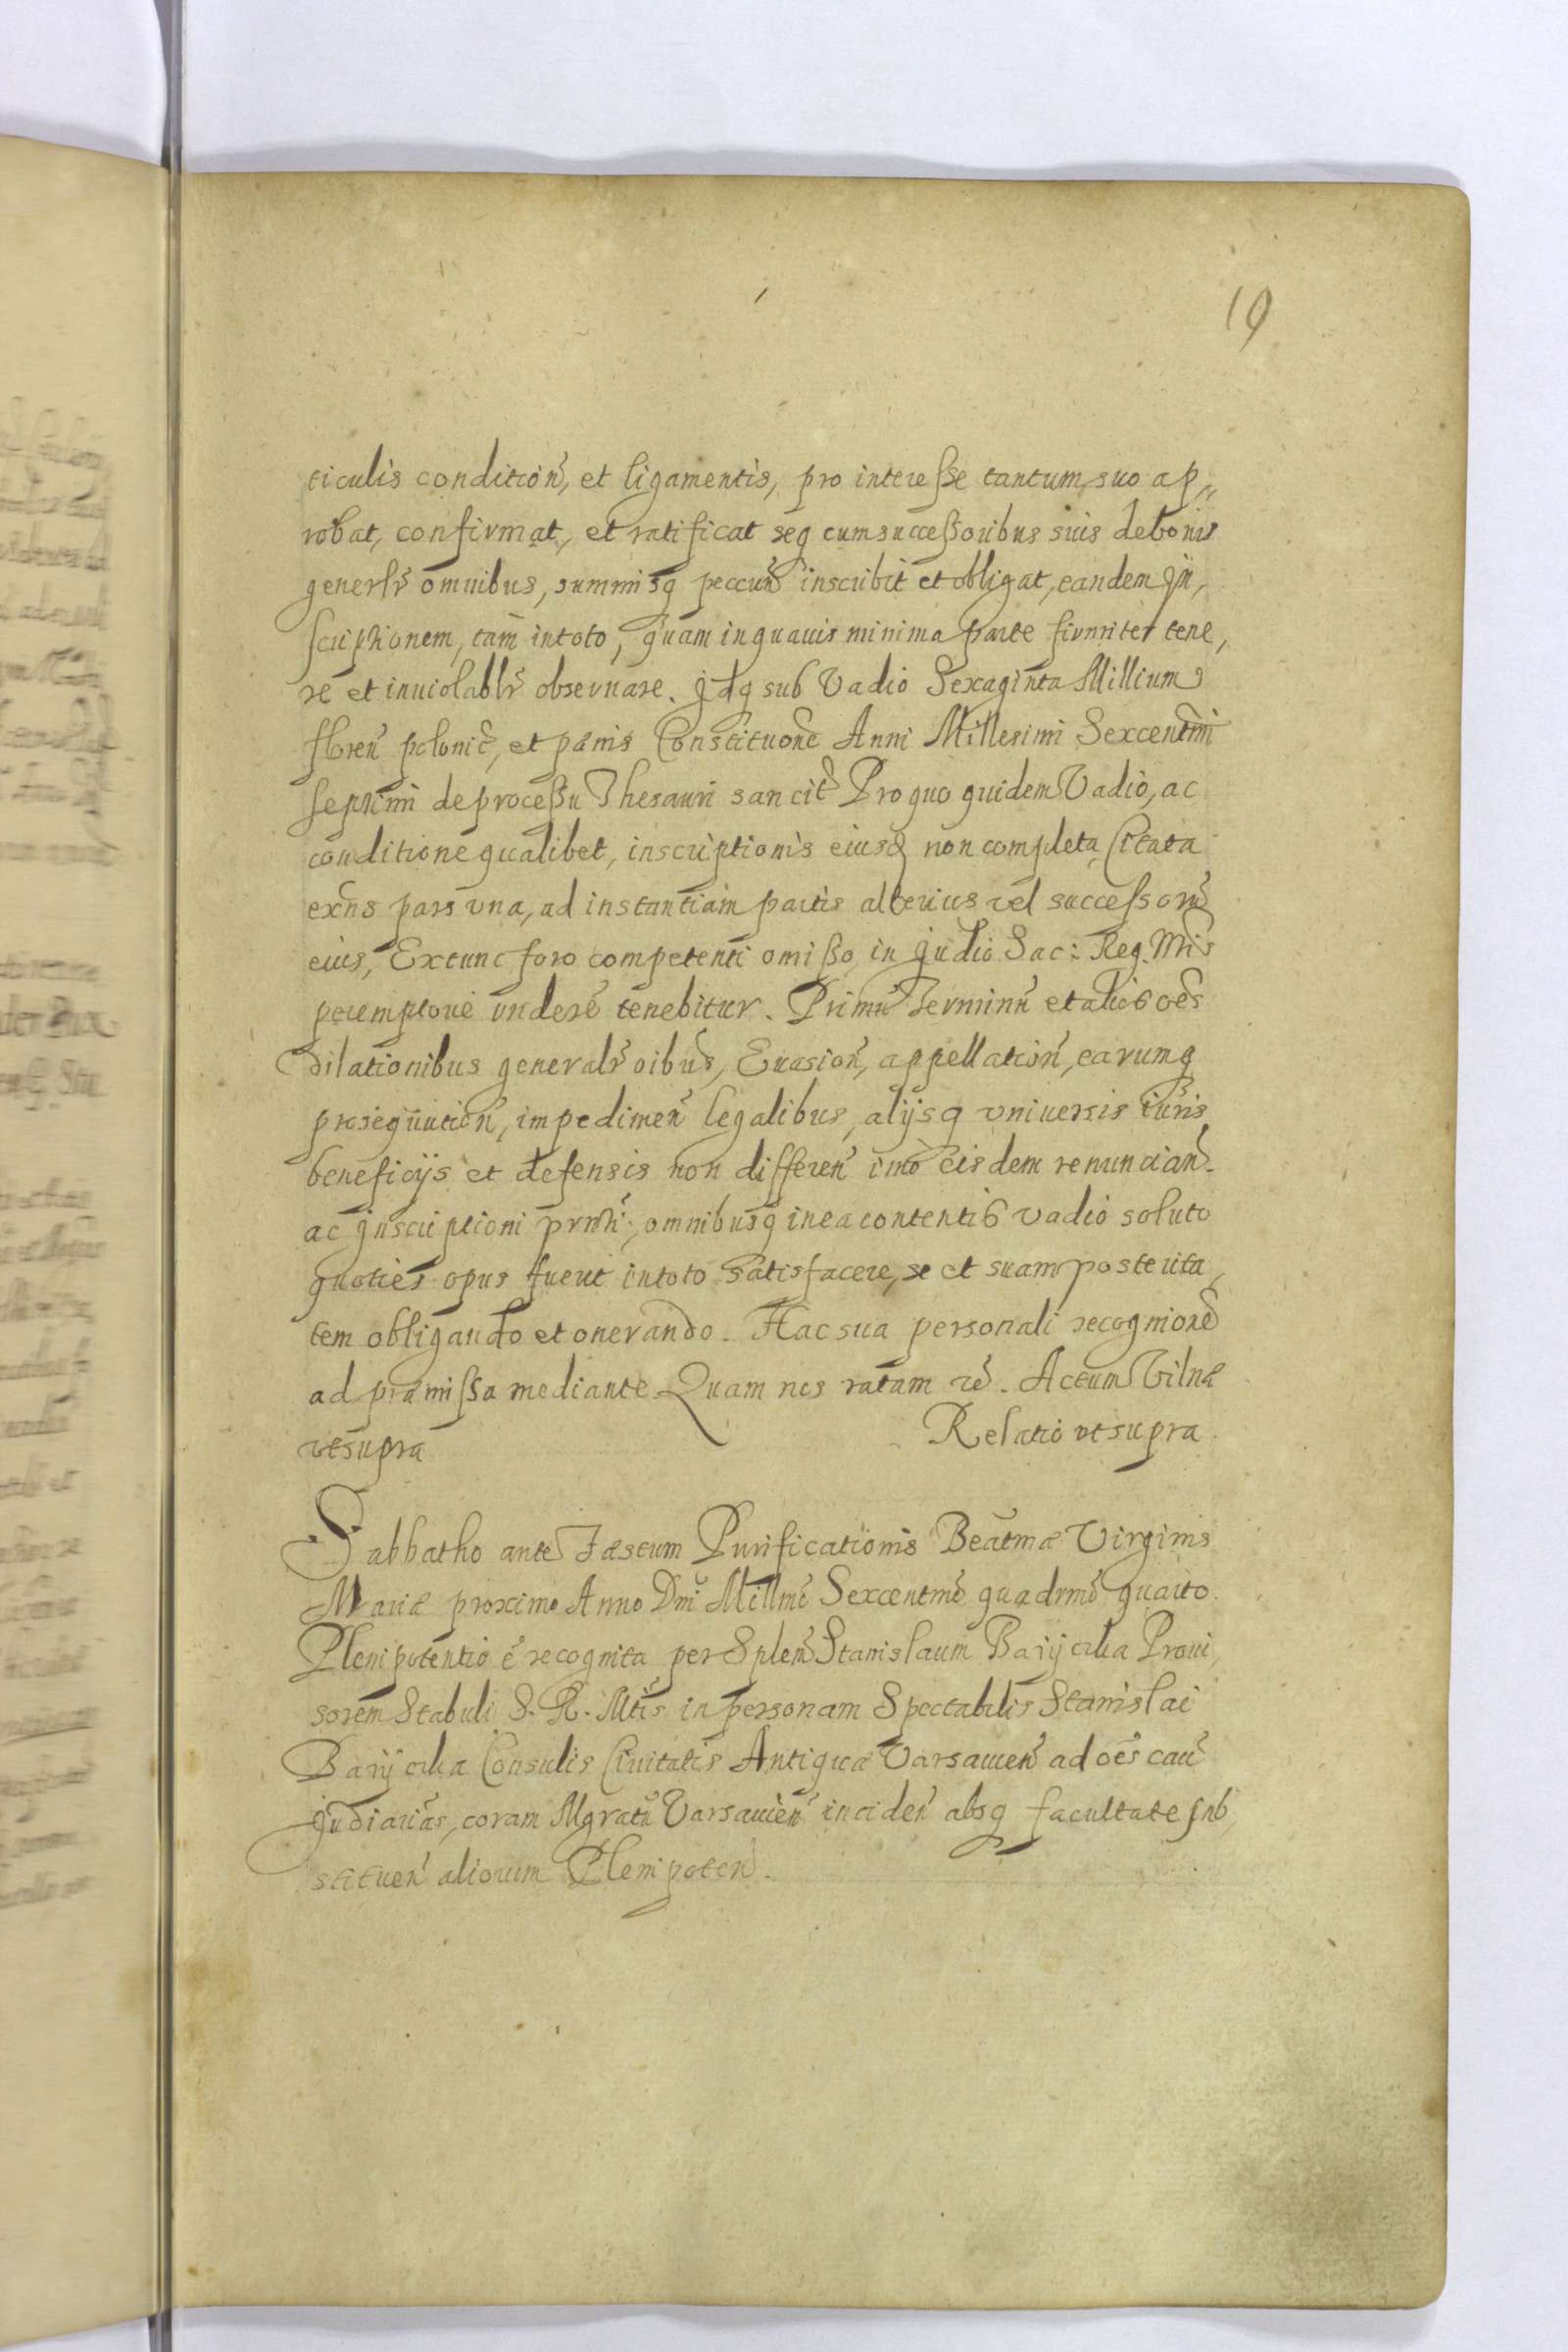 19
ticulis condition, et ligamentis, pro interesse tantum suo ap„
robat, confirmat, et ratificat seq cum successoribus suis de bonis
generlr omnibus, summisq peccun inscribit et obligat, eandem Jn,
scriptionem, tam in toto, quam in quavis minima parte firmiter tene,
re et inviolablr observare. Jdq sub Vadio Sexaginta Millium
floren polonic, et pænis Constituone Anni Millesimi Sexcentmi
septimi de processu Thesauri sancit Pro quo quidem Vadio, ac
conditione qualibet, inscriptionis eiusd non completa, Citata
exns pars una, ad instantiam partis alterius vel successorū
eius, Extunc foro competenti omisso, in Judio Sac: Reg. Mtis
peremptorie rndere tenebitur. Primū Terminū et alios oes
dilationibus generalr oibus, Evasion, appellation, earumq
prosequution, impedimen legalibus, alijsq universis iuris
beneficijs et defensis non differen imò eisdem renuncian.
ac Jnscriptioni prnti, omnibusq in ea contentis vadio soluto
quoties opus fuerit in toto satisfacere, se et suam posterita,
tem obligando et onerando. Hac sua personali recognione
ad præmissa mediante Quam nos ratam re. Actum Vilnæ
ut supra Relatio ut supra
Sabbatho ante Fæstum Purificationis Beatmæ Virginis
Mariæ proximo Anno Dni Millmo Sexcentmo quadrmo quarto.
Plenipotentio e recognita per Splen Stanislaum Baryczka Provi,
sorem Stabuli S. R. Mtis in personam Spectabilis Stanislai
Baryczka Consulis Civitatis Antiquæ Varsavien ad oes cau
Judiarias, coram Mgratu Varsavien inciden absq facultate sub,
stituen aliorum Plenipoten.